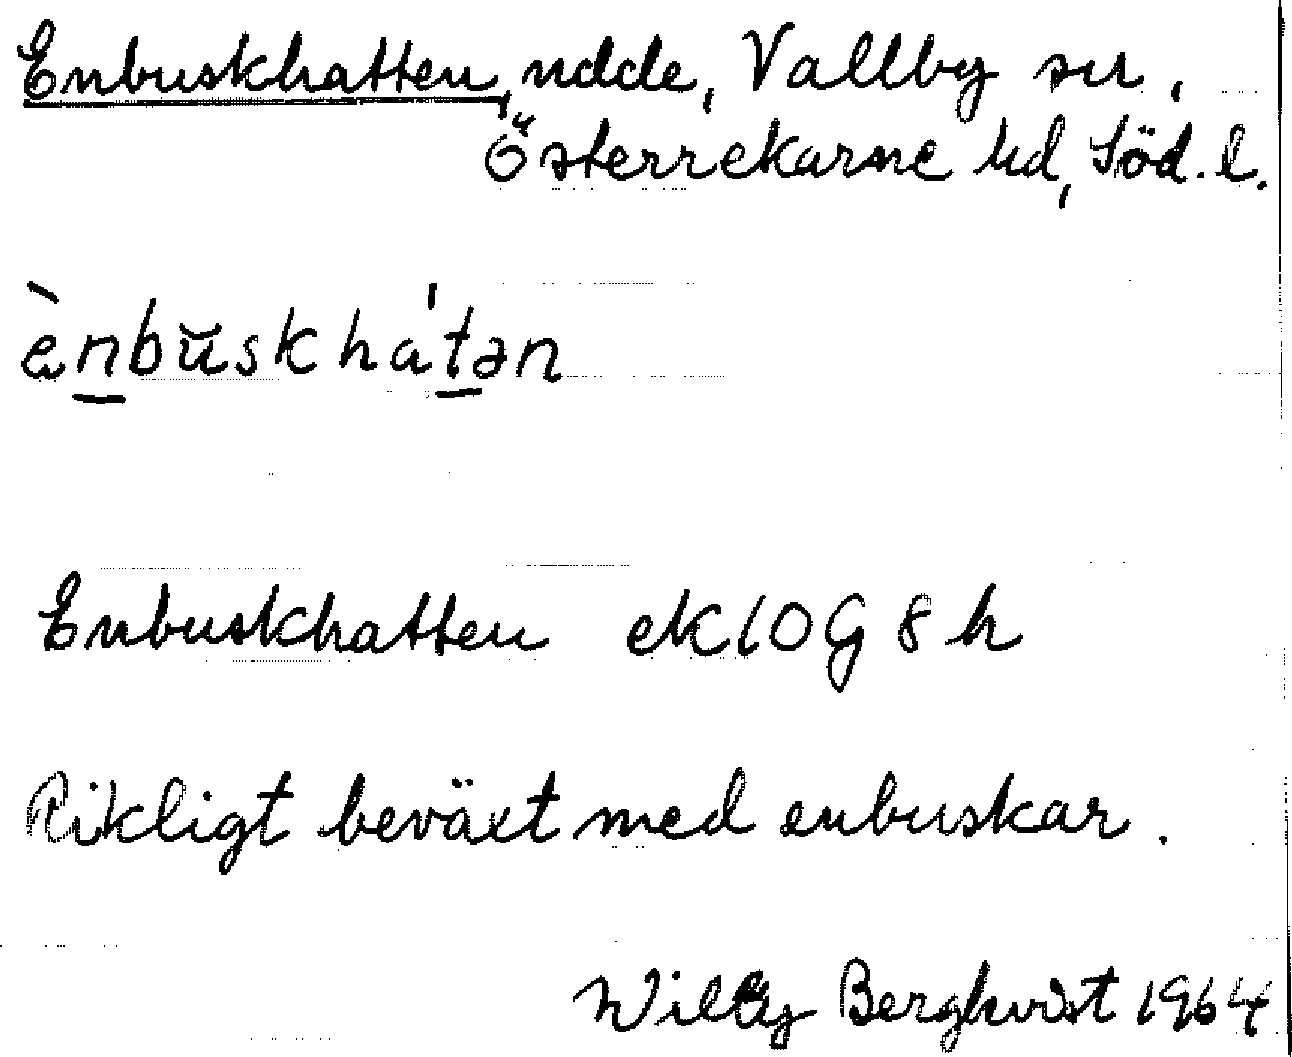 Enbuskhatten, udde, Vallby sn,
Österrekarne hd, Söd. l.
ènbŭskha'tən
Enbuskhatten ek 10 G 8 h
Rikligt beväxt med enbuskar.
Willy Bergkvist 1964